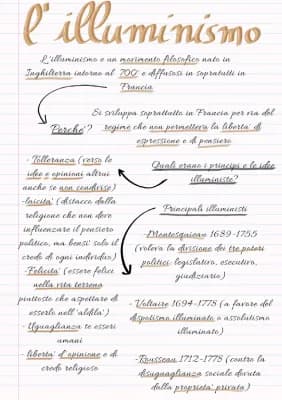 l'illuminismo
L'illuminismo e un movimento filosofico nato in
Inghilterra intorno al 700' e diffusosi in sopratutti in
Francia
Si sviluppa soprattutto in Francia per via del
Perche'? regime che non permetteva la liberta' di
espressione e di pensiero
- Tolleranza (verso le
idee e opinioni altrui
anche se non condivise)
Quali erano i principi e le idee
illuministe?
-laicita' (distacco dalla
religione che non deve
influenzare il pensiero
politico, ma bensi' solo il
credo di ogni individuo)
- Felicita' (essere felice
nella vita terrena
piuttosto che aspettare di
esserlo nell'aldila')
- Uguaglianza te esseri
umani
- liberta' d'opinione e di
credo religioso
Principali illuministi
-Montesquieau 1689-1755
(voleva la divisione dei tre poteri
politici: legislativo, esecutivo,
giudiziario)
- Voltaire 1694-1778 (a favore del
dispotismo illuminato o assolutismo
illuminato)
-Rousseau 1712-1778 (contro la
disuguaglianza sociale dovuta
dalla proprieta' privata)